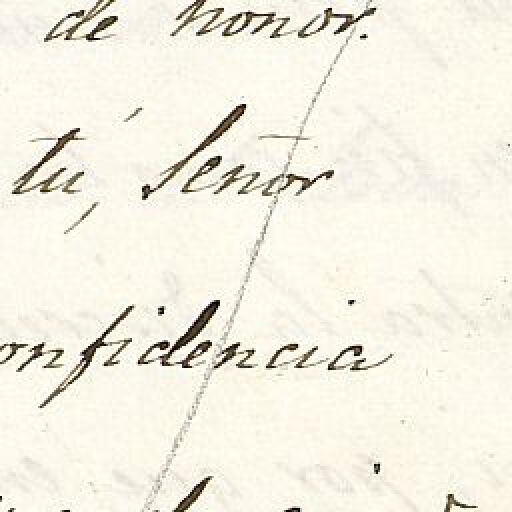 de honor.
tú, Señor
onfidencia